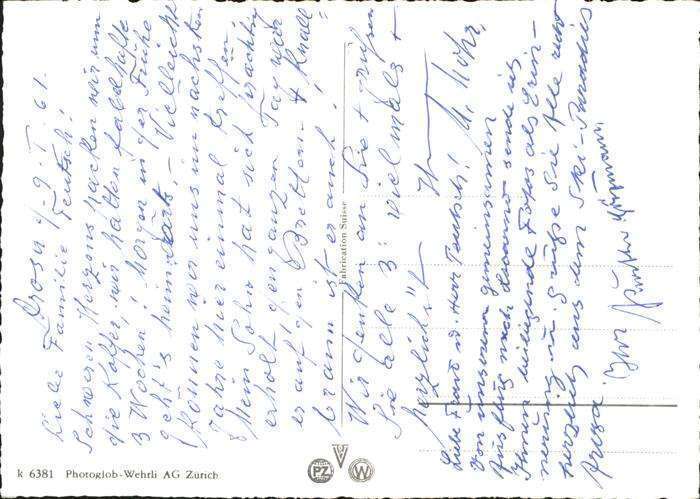 Arosa, 9. I. 61.
Liebe Familie Teutsch!
Schweren Herzens packen wir nun
die Koffer, wir hatten
3 Wochen! Morgen in der Frühe
geht's heimwärts. – Vielleicht
können wir uns im nächsten
Jahre hier einmal treffen.
Mein Sohn hat sich prächtig
erholt, den ganzen Tag war
er auf den Brettern + knall-
braun ist er auch!
Wir denken an Sie + grüßen
Sie alle 3 vielmals +
herzlichst
Liebe Frau u. Herr Teutsch!
Von unserem gemeinsamen
Ausflug nach sende ich
Ihnen beiliegende Fotos als Erin-
nerung u. grüße Sie alle recht
herzlich aus dem Ski-Paradies
Arosa. Ihr Günther
Fabrication Suisse
k 6381 Photoglob-Wehrli AG Zürich
PZ
W